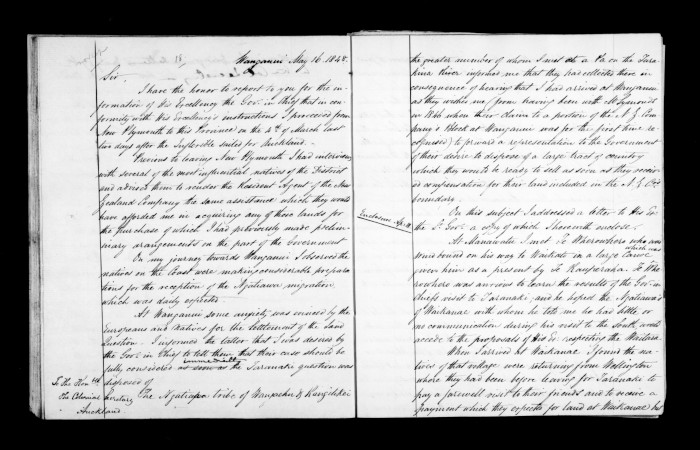 Wanganui May 16 1848.
Sir
I have the honor to report to you for the in-
formation of His Excellency the Gov. in Chief that in con-
formity with His Excellency's instructions I proceeded from
New Plymouth to this Province on the 4th of March last
two days after the Inflexible sailed for Auckland.
Previous to leaving New Plymouth I had interviews
with several of the most influential natives of the District
and advised them to render the Resident Agent of the New
Zealand Company the same assistance which they would
have afforded me in acquiring any of those lands for
the purchase of which I had previously made prelimi-
nary arrangements on the part of the Government
On my journey towards Wanganui I observed the
natives on the Coast were making considerable prepara
tions for the reception of the Ngatiawa migration
which was daily expected.
At Wanganui some anxiety was evinced by the
Europeans and Natives for the settlement of the Land
Question. I informed the latter that I was desired by
the Gov. in Chief to tell them that their case should be
fully considered as soon as the Taranaki question was
immediately
disposed of
The Ngatiapa tribe of Wangaehu & Rangitikei
To the Hon ble
The Colonial
Secretary
Auckland
the greater number of whom I met at a Pa on the Tura
kina River informed me that they had collected there in
consequence of hearing that I had arrived at Wanganui
as they wished me (from having been with Mr Symonds
in 1846 when their claim to a portion of the N Z Com
pany's Block at Wanganui was for the first time re
cognised) to forward a representation to the Government
of their desire to dispose of a large tract of country
which they would be ready to sell as soon as they receiv
ed compensation for their land included in the N Z Co's
boundary.
On this subject I addressed a letter to His Ex
the Lt. Gov. a copy of which I herewith enclose.
Enclosure
At Manawatu I met Te Wherowhero who was
on his way to Waikato in a large Canoe
which was
given him as a present by Te Rauperaha. Te Whe
rowhero was anxious to learn the results of the Gov. in
Chief's visit to Taranaki, and he hoped the Ngatiawa's
of Waikanae with whom he told me he had little or
no communication during his visit to the South would
accede to the proposals of His Ex. respecting the Waitara.
When I arrived at Waikanae I found the na
tives of that village were returning from Wellington
where they had been before leaving for Taranaki to
pay a farewell visit to their friends and to receive a
payment which they expected for land at Waikanae but